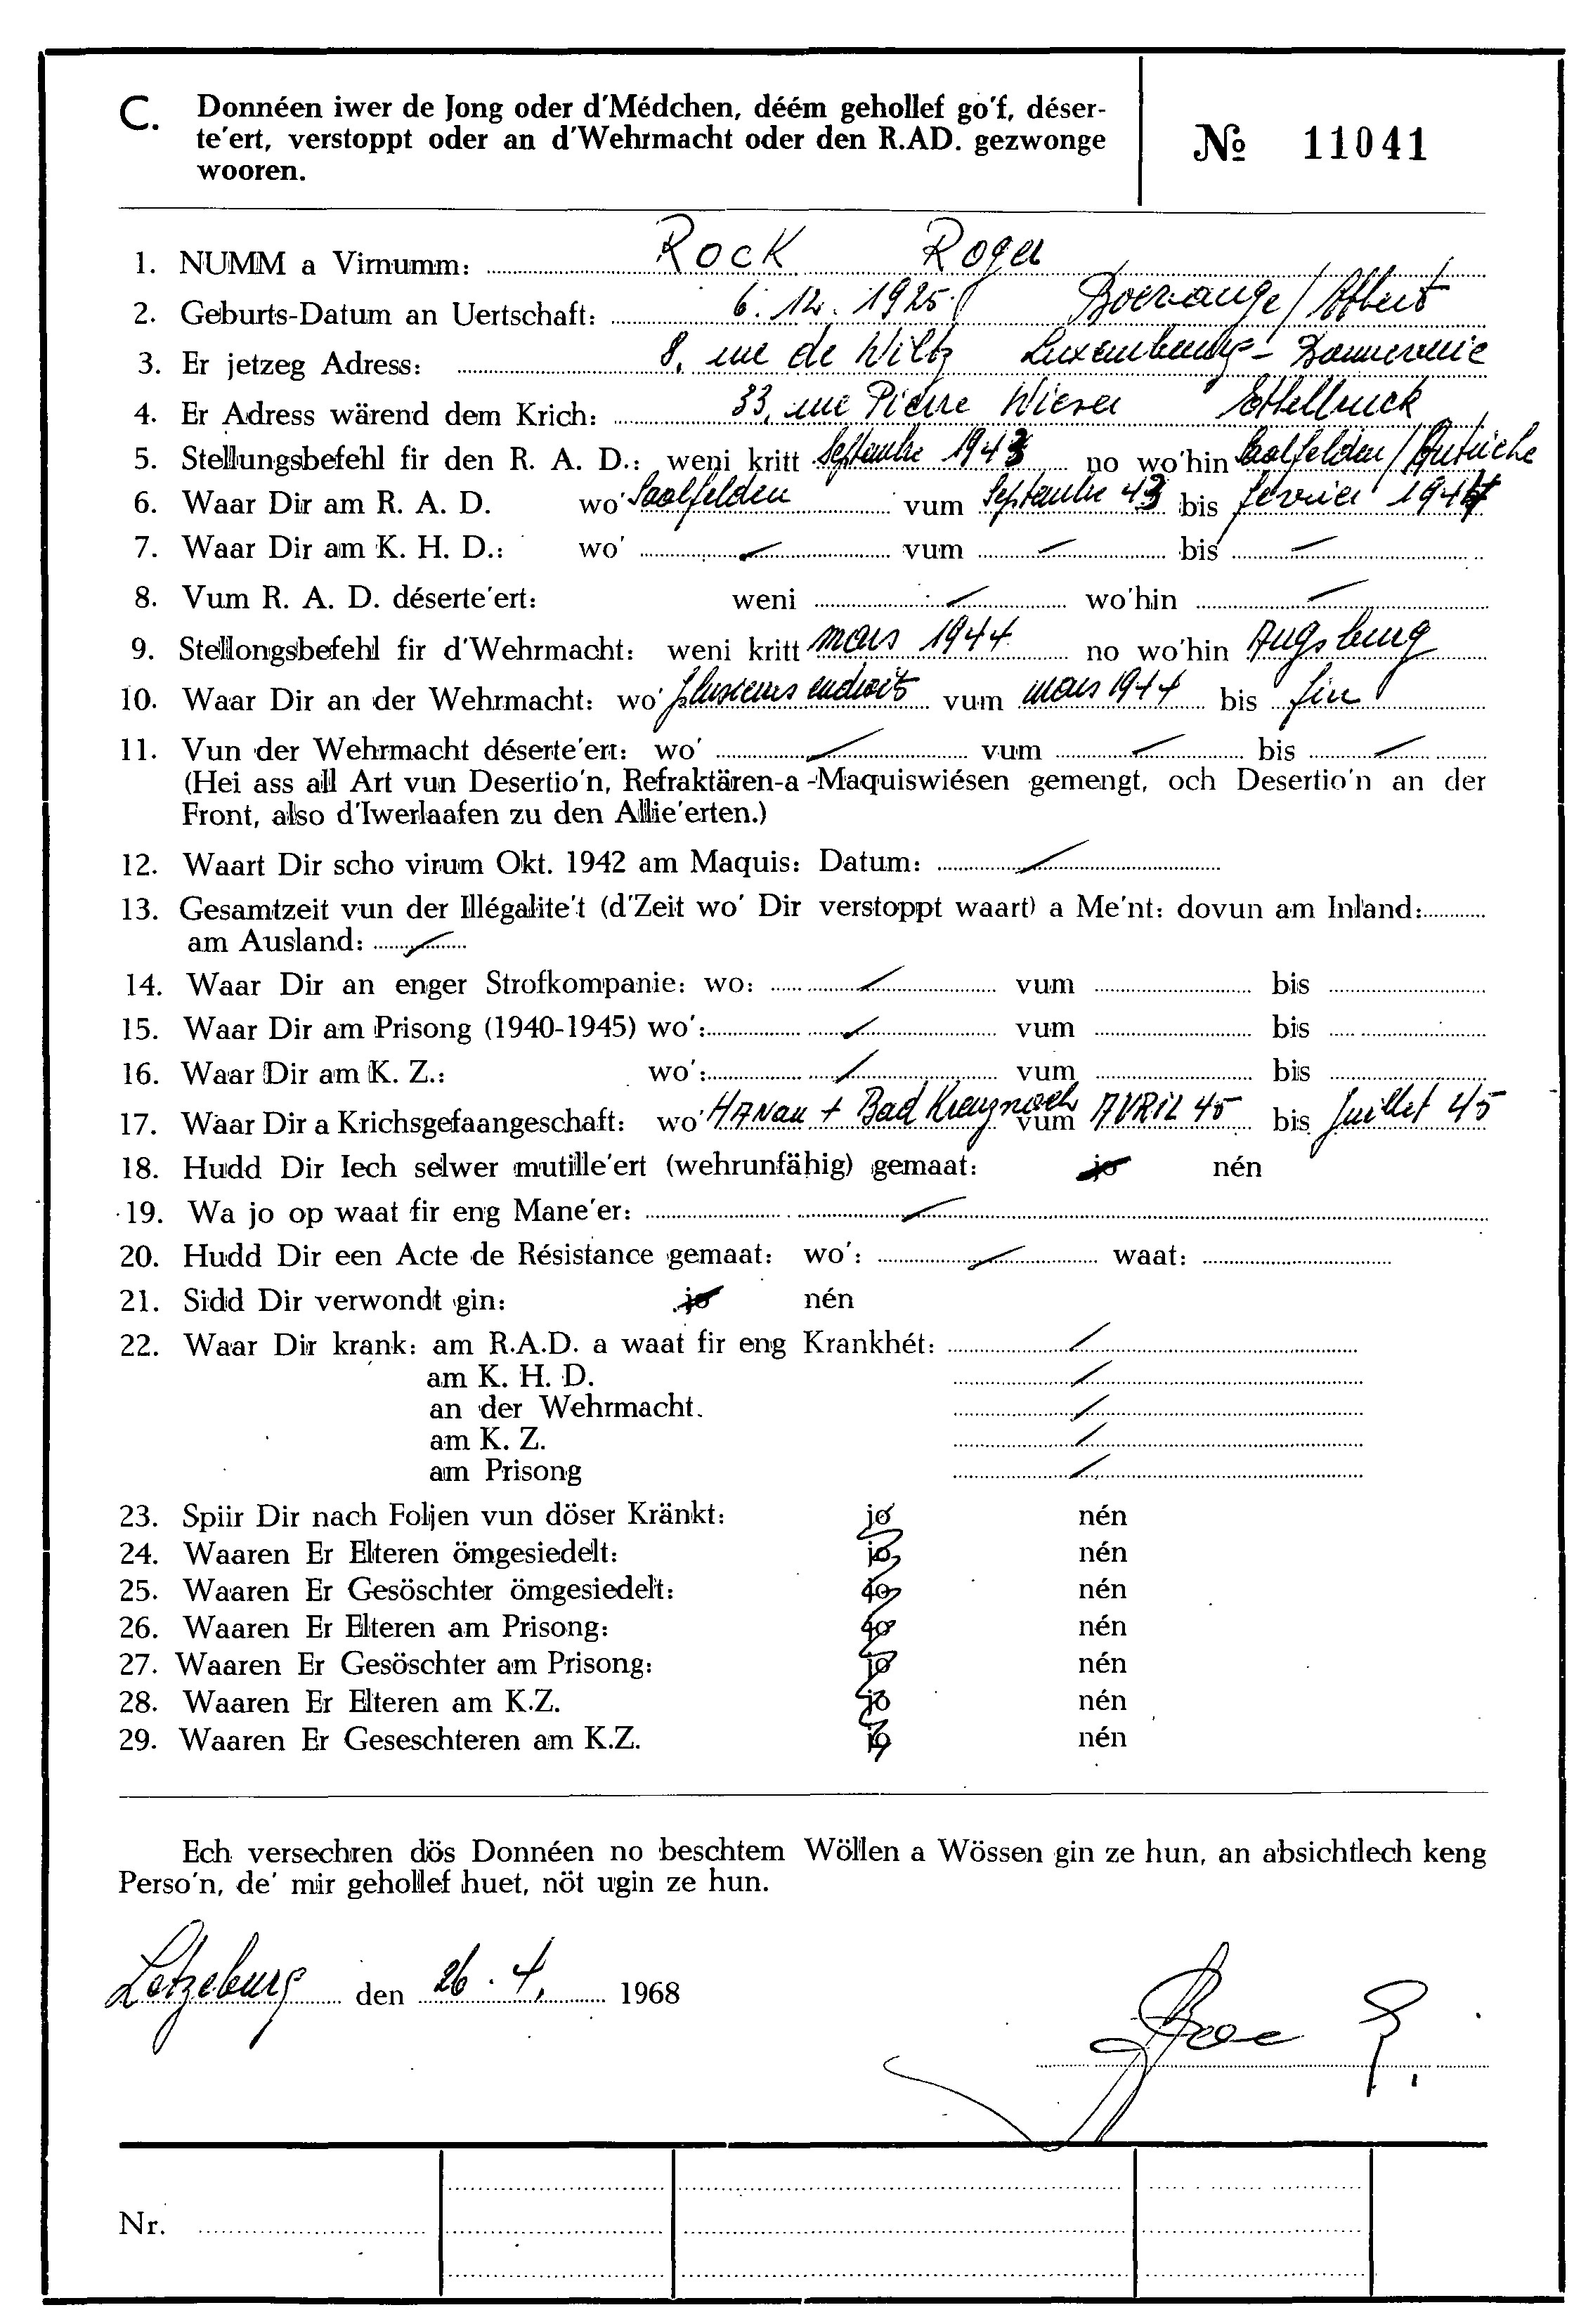 C. Donnéen iwer de Jong oder d'Médchen, déém gehollef go'f, déser-
te'ert, verstoppt oder an d'Wehrmacht oder den R.AD. gezwonge
wooren.
№ 11041
1. NUMM a Virnumm: Rock Roger
2. Geburts-Datum an Uertschaft: 6. 12. 1925 Boevange/Attert
3. Er jetzeg Adress: 8, rue de Wiltz Luxembourg-Bonnevoie
4. Er Adress wärend dem Krich: 33, rue Pierre Wieser Ettelbruck
5. Stellungsbefehl fir den R. A. D.: weni kritt Septembre 1943 no wo'hin Saalfelden/Autriche
6. Waar Dir am R. A. D. wo' Saalfelden vum Septembre 43 bis février 1944
7. Waar Dir am K. H. D.: wo' vum bis
8. Vum R. A. D. déserte'ert: weni wo'hin
9. Stellongsbefehl fir d'Wehrmacht: weni kritt mars 1944 no wo'hin Augsburg
10. Waar Dir an der Wehrmacht: wo' plusieurs endroits vum mars 1944 bis fin
11. Vun der Wehrmacht déserte'ert: wo' vum bis
(Hei ass all Art vun Desertio'n, Refraktären-a -Maquiswiésen gemengt, och Desertio'n an der
Front, also d'Iwerlaafen zu den Allie'erten.)
12. Waart Dir scho virum Okt. 1942 am Maquis: Datum:
13. Gesamtzeit vun der Illégalite't (d'Zeit wo' Dir verstoppt waart) a Me'nt: dovun am Inland:
am Ausland:
14. Waar Dir an enger Strofkompanie: wo: vum bis
15. Waar Dir am Prisong (1940-1945) wo': vum bis
16. Waar Dir am K. Z.: wo': vum bis
17. Waar Dir a Krichsgefaangeschaft: wo' HANau + Bad Kreuznach vum AVRIL 45 bis Juillet 45
18. Hudd Dir Iech selwer mutille'ert (wehrunfähig) gemaat: jo nén
19. Wa jo op waat fir eng Mane'er:
20. Hudd Dir een Acte de Résistance gemaat: wo': waat:
21. Sidd Dir verwondt gin: jo nén
22. Waar Dir krank: am R.A.D. a waat fir eng Krankhét:
am K. H. D.
an der Wehrmacht.
am K. Z.
am Prisong
23. Spiir Dir nach Foljen vun döser Kränkt: jo nén
24. Waaren Er Elteren ömgesiedelt: jo nén
25. Waaren Er Gesöschter ömgesiedelt: jo nén
26. Waaren Er Elteren am Prisong: jo nén
27. Waaren Er Gesöschter am Prisong: jo nén
28. Waaren Er Elteren am K.Z. jo nén
29. Waaren Er Geseschteren am K.Z. jo nén
Ech versechren dös Donnéen no beschtem Wöllen a Wössen gin ze hun, an absichtlech keng
Perso'n, de' mir gehollef huet, nöt ugin ze hun.
Letzeburg den 26. 4. 1968
Nr.